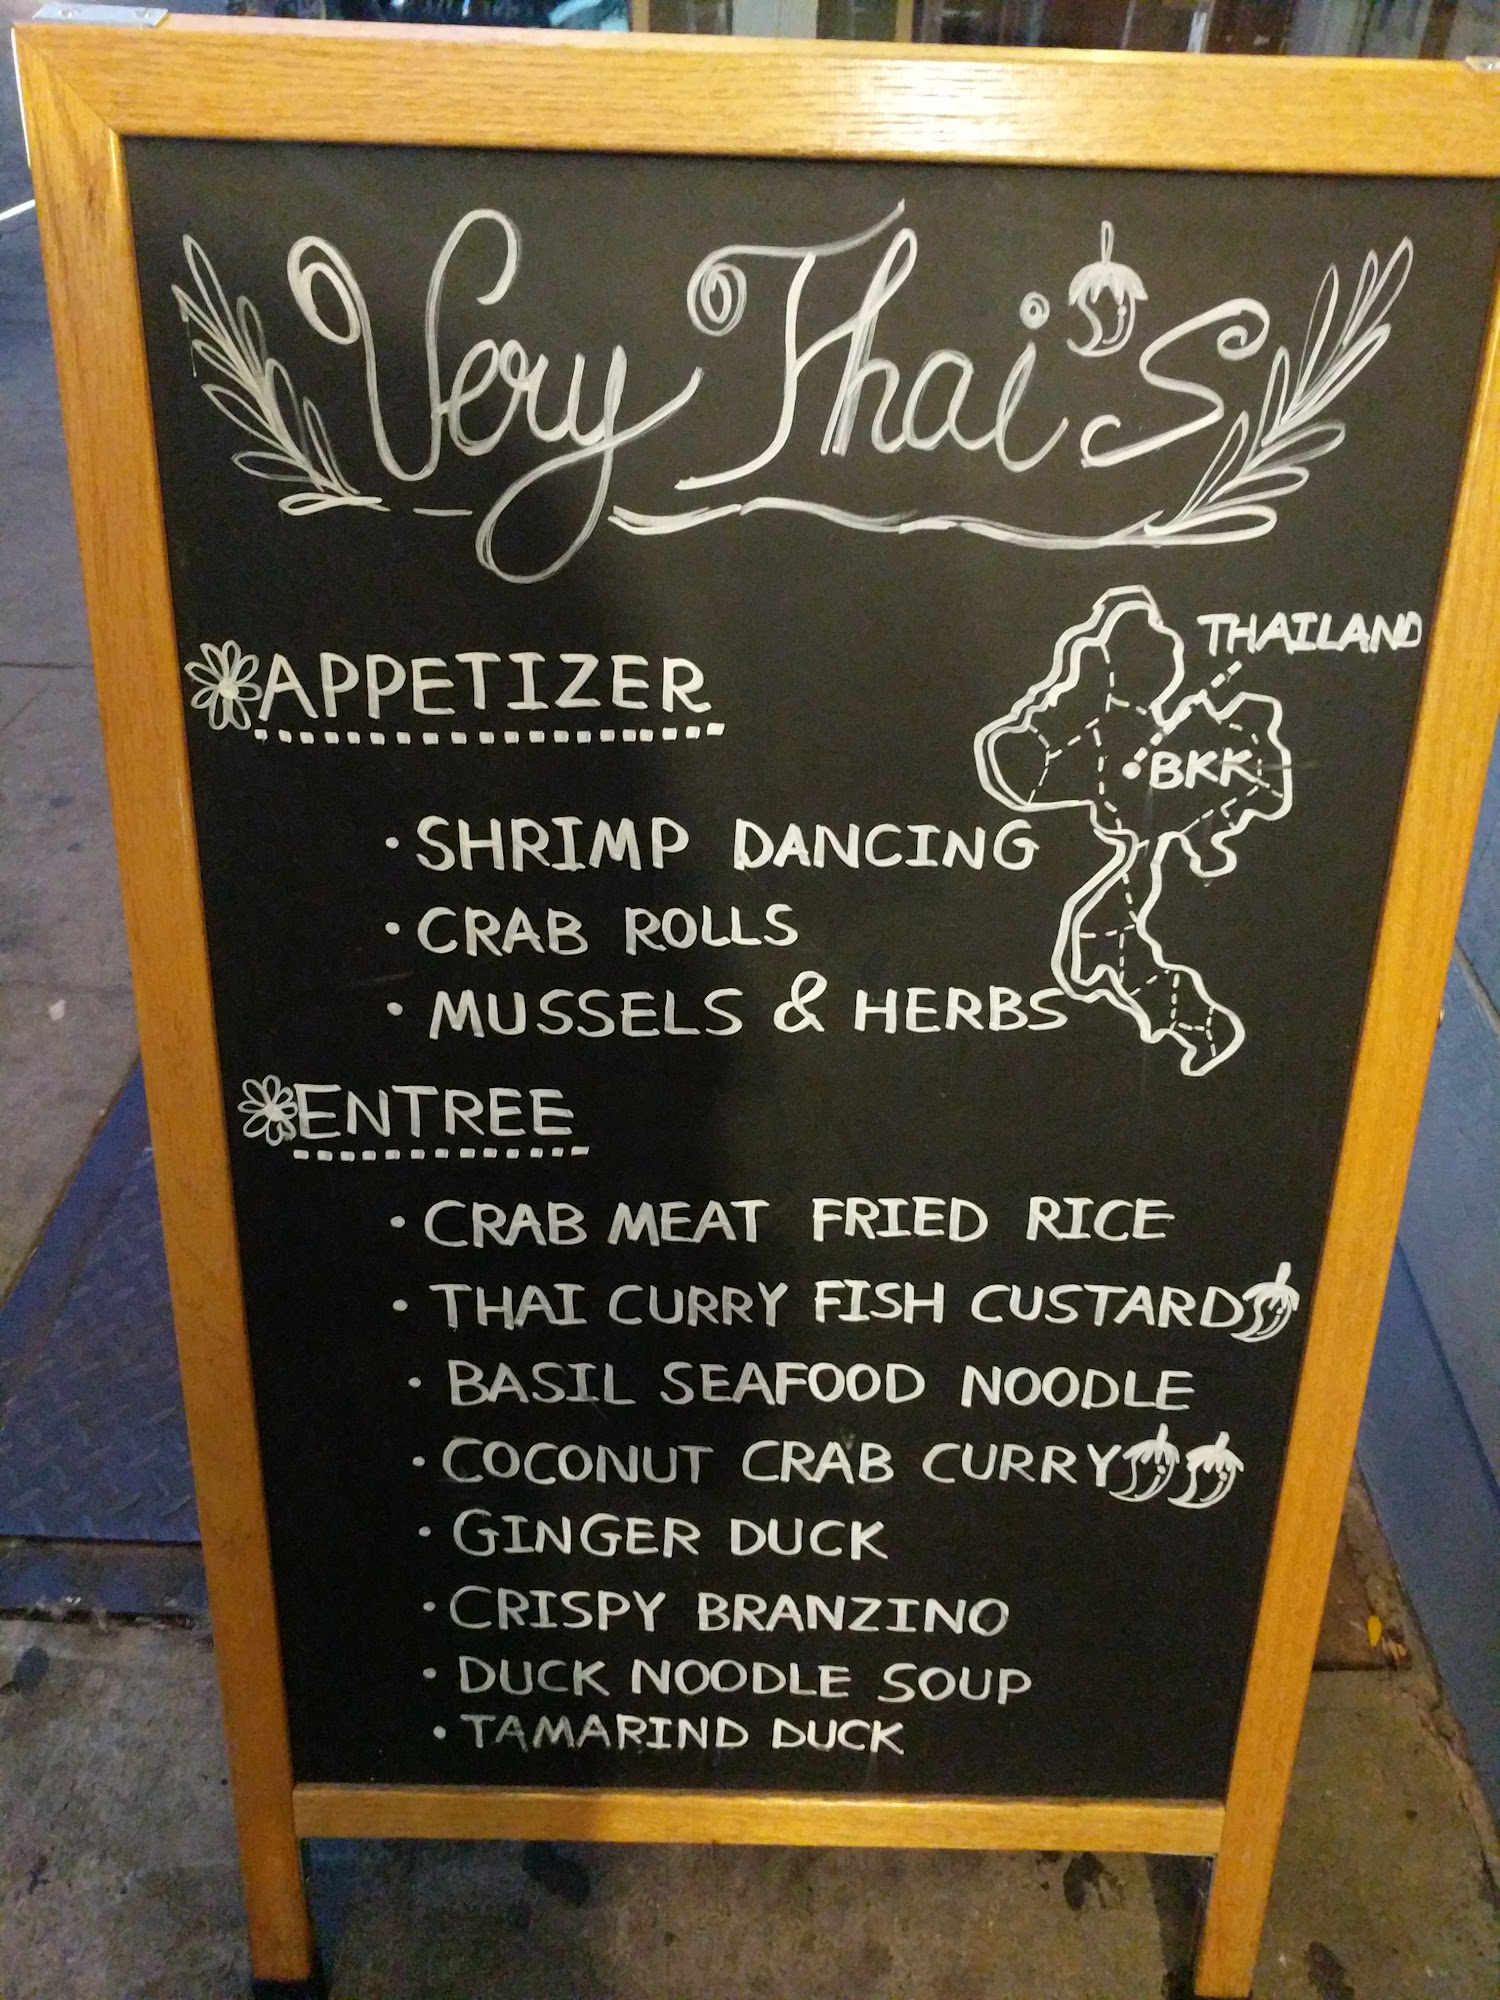 Very Thai's
THAILAND
BKK
APPETIZER
• SHRIMP DANCING
• CRAB ROLLS
• MUSSELS & HERBS
ENTREE
• CRAB MEAT FRIED RICE
• THAI CURRY FISH CUSTARD
• BASIL SEAFOOD NOODLE
• COCONUT CRAB CURRY
• GINGER DUCK
• CRISPY BRANZINO
• DUCK NOODLE SOUP
• TAMARIND DUCK